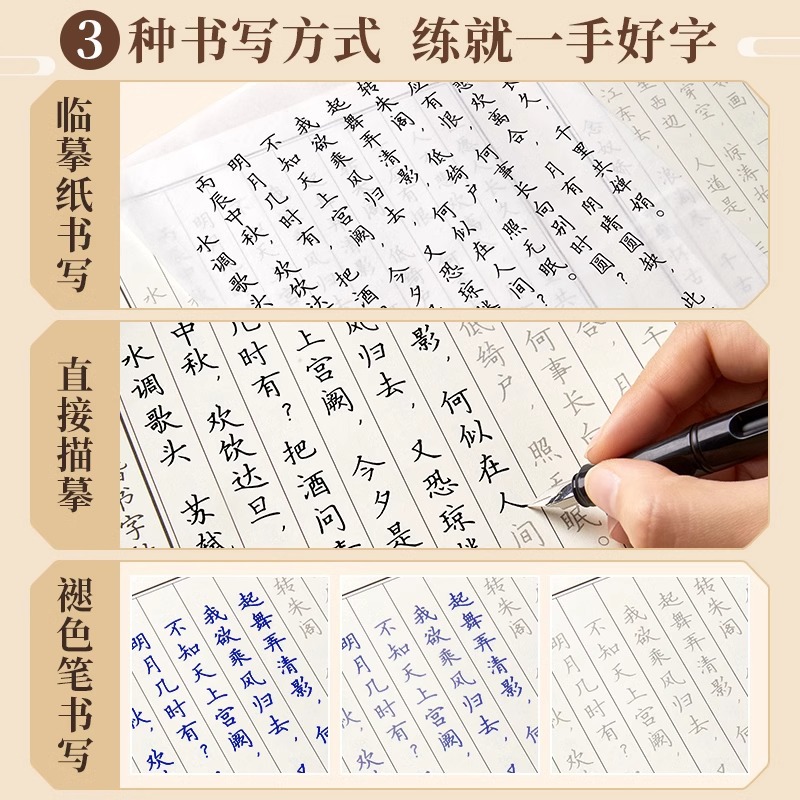 3种书写方式 练就一手好字
临摹纸书写
水调歌头
丙辰中秋，欢饮达
明月几时有？把酒
不知天上宫阙，今夕
我欲乘风归去，又恐琼
起舞弄清影，何似在人间？
转朱阁，低绮户，照无眠。
应有恨，何事长向别时圆？
欢离合，月有阴晴圆缺，此
久，千里共婵娟。
江东去，
西边，人道是，
穿空，惊涛拍
直接描摹
书字
水调歌头 苏轼
中秋，欢饮达旦，
几时有？把酒问
上宫阙，今夕是
风归去，又恐琼
影，何似在人间
低绮户，照无眠。
何事长向
合，月
千
褪色笔书写
秋，欢
明月几时有？
不知天上宫阙，
我欲乘风归去，
起舞弄清影，何
转朱阁
秋，欢
明月几时有？
不知天上宫阙，
我欲乘风归去，
起舞弄清影，何
转朱阁
秋，欢
明月几时有？
不知天上宫阙，
我欲乘风归去，
起舞弄清影，何
转朱阁